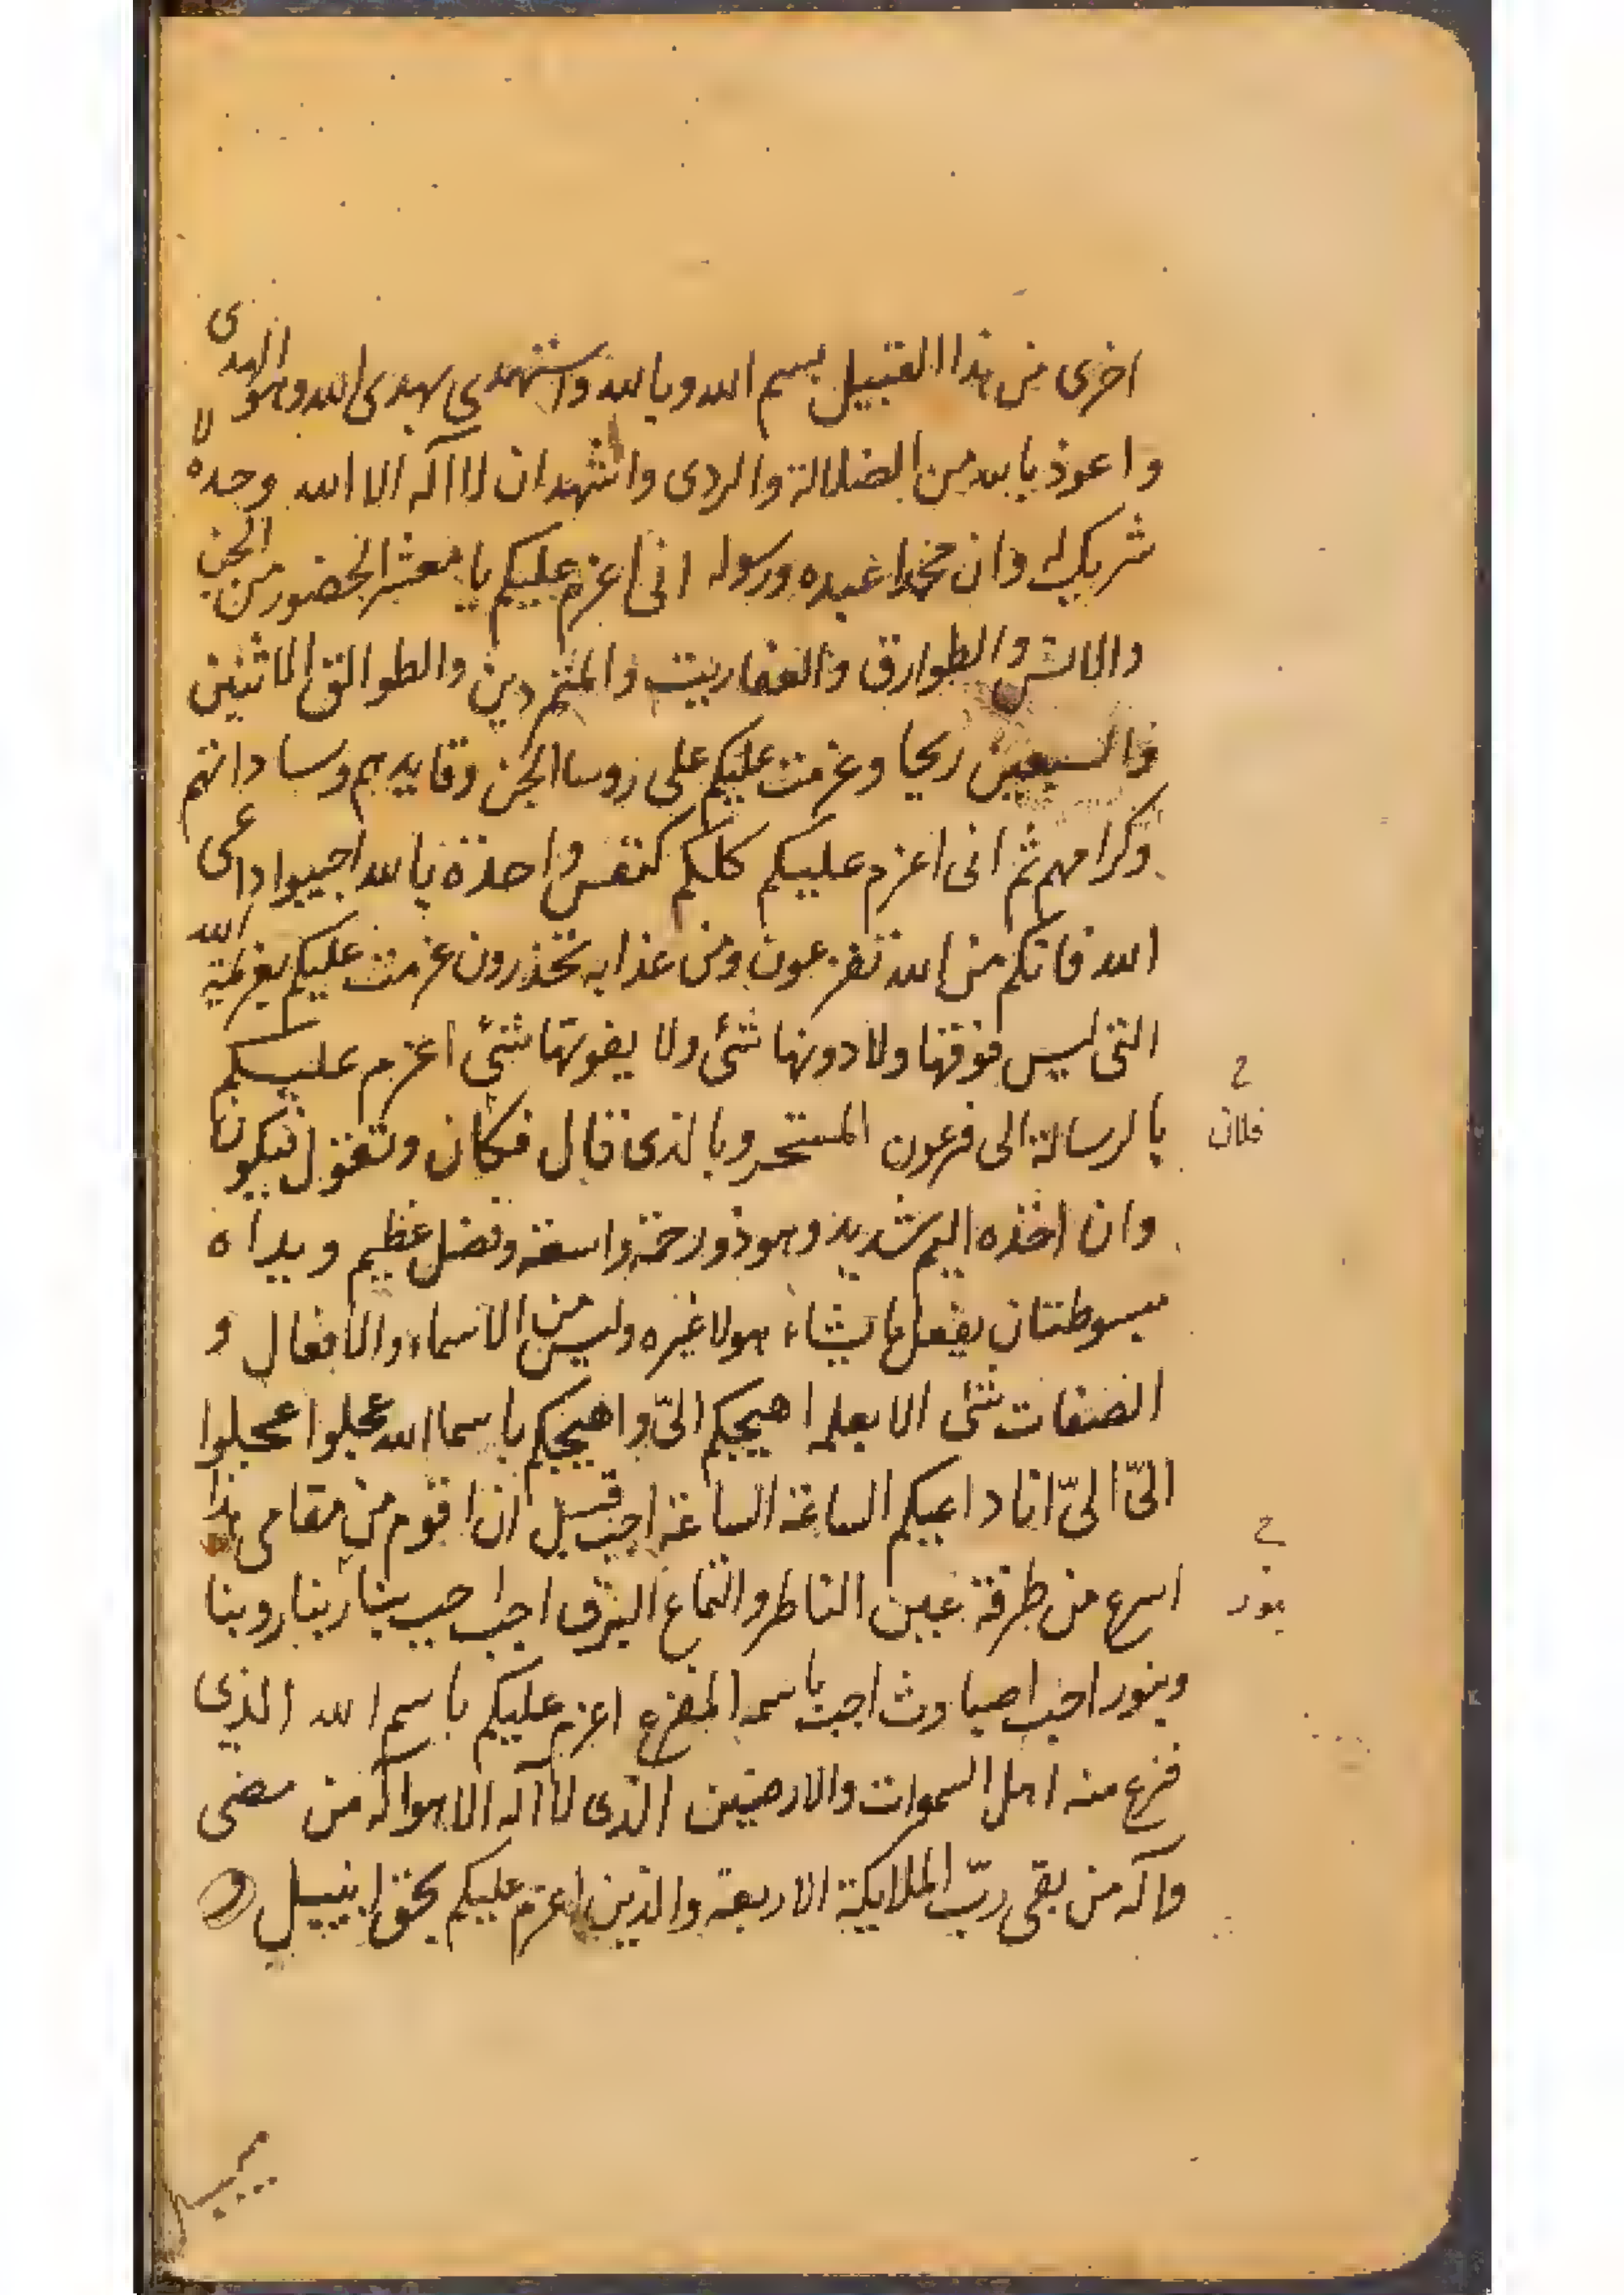 اخرى من هذا القبيل بسم الله وبالله واستهدى بهدى الله وهو الهدى
واعوذ بالله من الضلالة والردى واشهد ان لا اله الا الله وحده لا
شريك له وان محمدا عبده ورسوله انى اعزم عليكم يا معشر الحضور من الجن
والانس والطوارق والعفاريت والمتمردين والطوالق الاثنين
والسبعين ريحا وعزمت عليكم على روسا الجن وقايدهم وساداتهم
وكرامهم ثم انى اعزم عليكم كلكم كنفس واحدة بالله اجيبوا داعى
الله فانكم من الله تفزعون ومن عذابه تحذرون عزمت عليكم بعزيمة الله
التى ليس فوقها ولا دونها شئ ولا يفوتها شئ اعزم عليكم
بالرسالة الى فرعون وبالذى قال فكان وتقول فيكون
خ
فلان
وان اخذه اليم شديد وهو ذو رحمة واسعة وفضل عظيم ويداه
مبسوطتان يفعل ما يشاء هو لا غيره وليس من الاسماء والافعال و
الصفات شئ الا بعلمه اهيجكم الىّ واهيجكم باسما الله عجلوا عجلوا
الىّ الىّ انا داعيكم الساعة الساعة اجب قبل ان اقوم من مقامى هذا
اسرع من طرفة عين الناظر والتماع البرق اجب
خ
وبنور اجب اصباوث اجب باسمه المفزع اعزم عليكم باسم الله الذى
فزع منه اهل السموات والارضين الذى لا اله الا هو اله من مضى
واله من بقى ربّ الملايكة الاربعة والذين اعزم عليكم بحق و